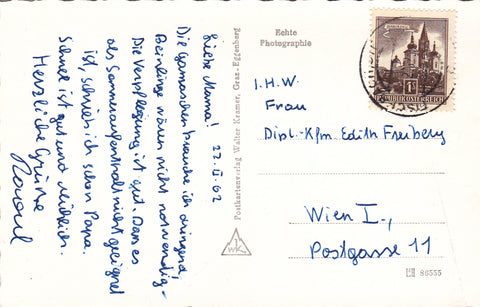 Liebe Mama! 22.II.62
Die Gamaschen brauche ich dringend,
wären nicht notwendig.
Die Verpflegung ist gut. Dass es
als Sommeraufenthalt nicht geeignet
ist, schrieb ich schon Papa.
Schnee ist gut und
Herzliche Grüße
Postkartenverlag Walter Kramer, Graz-Eggenberg
WK
Echte
Photographie
REPUBLIK ÖSTERREICH
I.H.W.
Frau
Dipl.-Kfm. Edith Freiberg
Wien I.,
Postgasse 11
86555